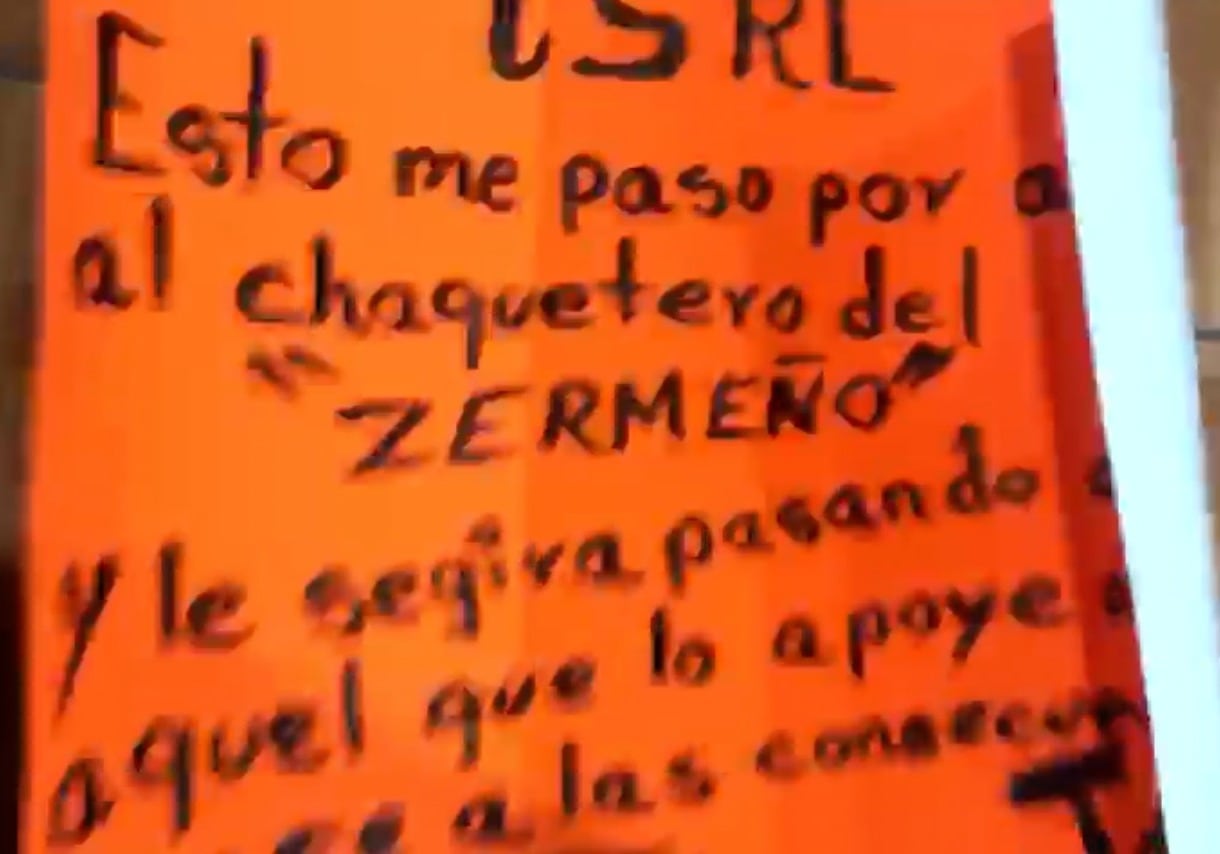 CSRL
Esto me paso por a
al chaquetero del
"ZERMEÑO"
y le segira pasando a
aquel que lo apoye a
a las consecuen